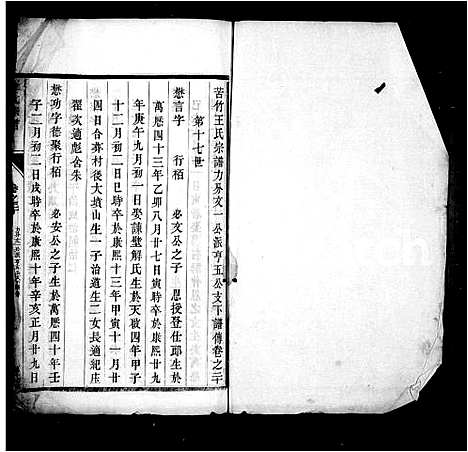 苦竹王氏宗譜力分文一公派亨五公支下譜傳卷之二十
第十七世
懋言字 行栢 必文公之子 恩授登仕郎生於
萬厯四十三年乙卯八月廿七日寅時卒於康熙廿九
年庚午九月初一日娶謙堅解氏生於天啟四年甲子
十二月初二日巳時卒於康熙十三年甲寅十一月廿
四日合葬村後大墳山生一子治道生二女長適紀庄
翟次適彪舍朱
懋功字德聚行栢 必安公之子生於萬厯四十年壬
子二月初二日戌時卒於康熙十年辛亥正月廿九日